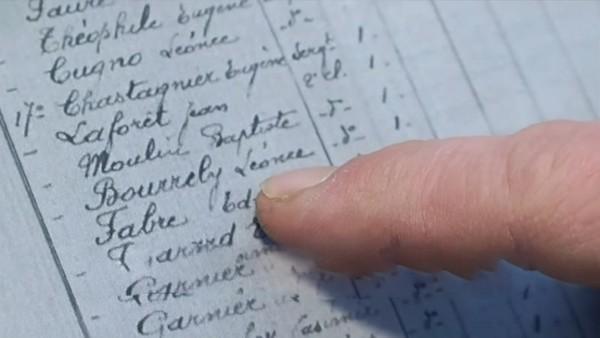 Faure
Théophile Eugène -d°-
Cugno Léonce -d°-
17= Chastagnier Eugène Sergt 1-
Laforêt Jean 2e cl. 1-
Moulin Baptiste -d°- 1-
Bourrely Léonce -d°- 1-
Fabre
Garnier
Garnier
Casimir